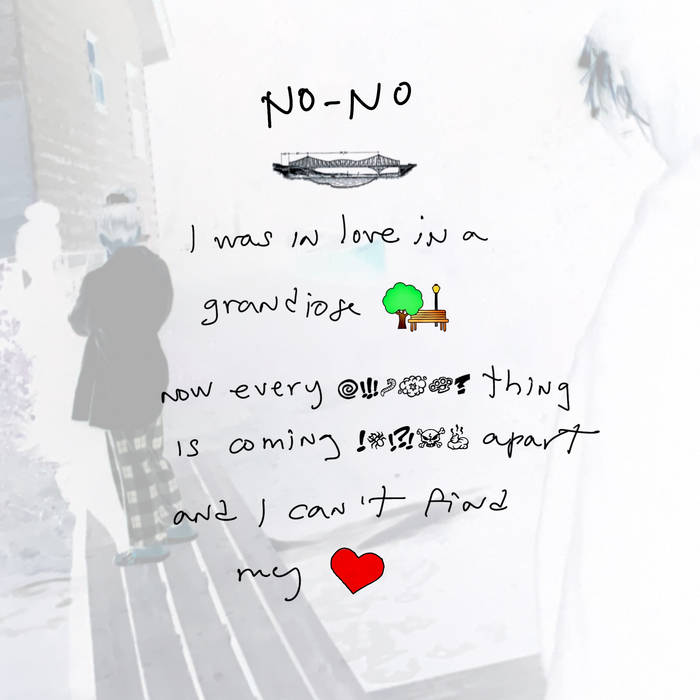 NO-NO
I was in love in a
grandiose
now every @!!! thing
is coming !?! apart
and I can't find
my